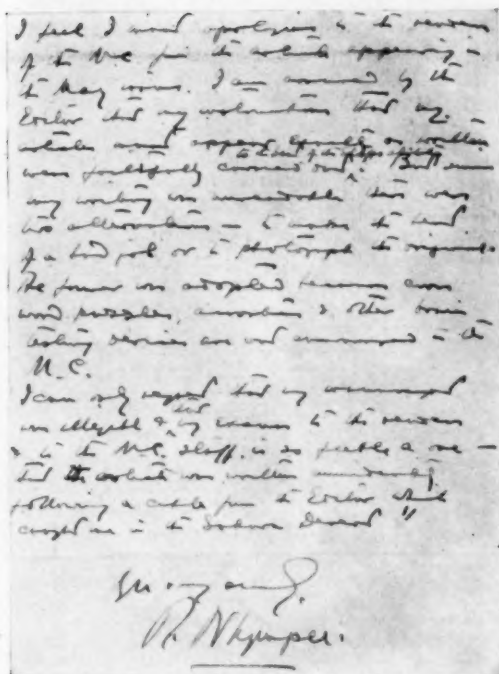 I feel I must apologise to the readers
of the N.C. for the article appearing in
the May issue. I am assured by the
Editor that my instructions that my
articles must appear exactly as written
were faithfully carried out to the best of the. But since
my writing was unreadable there were
two alternatives — to make the best
of a bad job or to photograph the original.
The former was adopted because cross
word puzzles, & other brain
testing devices are not encouraged in the
N.C.
I can only regret that my manuscript
was illegible & that my excuse to the readers
& to the N.C. staff, is so feeble a one —
that the article was written hurriedly
following a cable from the Editor which
caught me in the Desert"